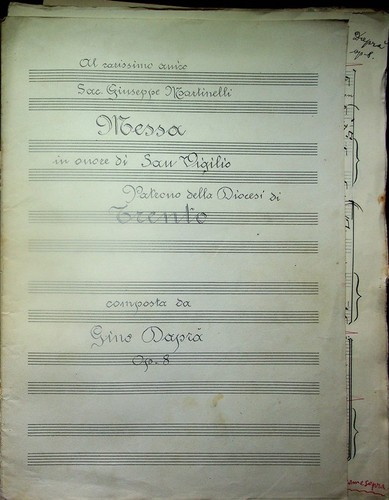 Al carissimo amico
Sac. Giuseppe Martinelli
Messa
in onore di San Vigilio
Patrono della Diocesi di
Trento
composta da
Gino Daprà
Op. 8
Daprà
op. 8.